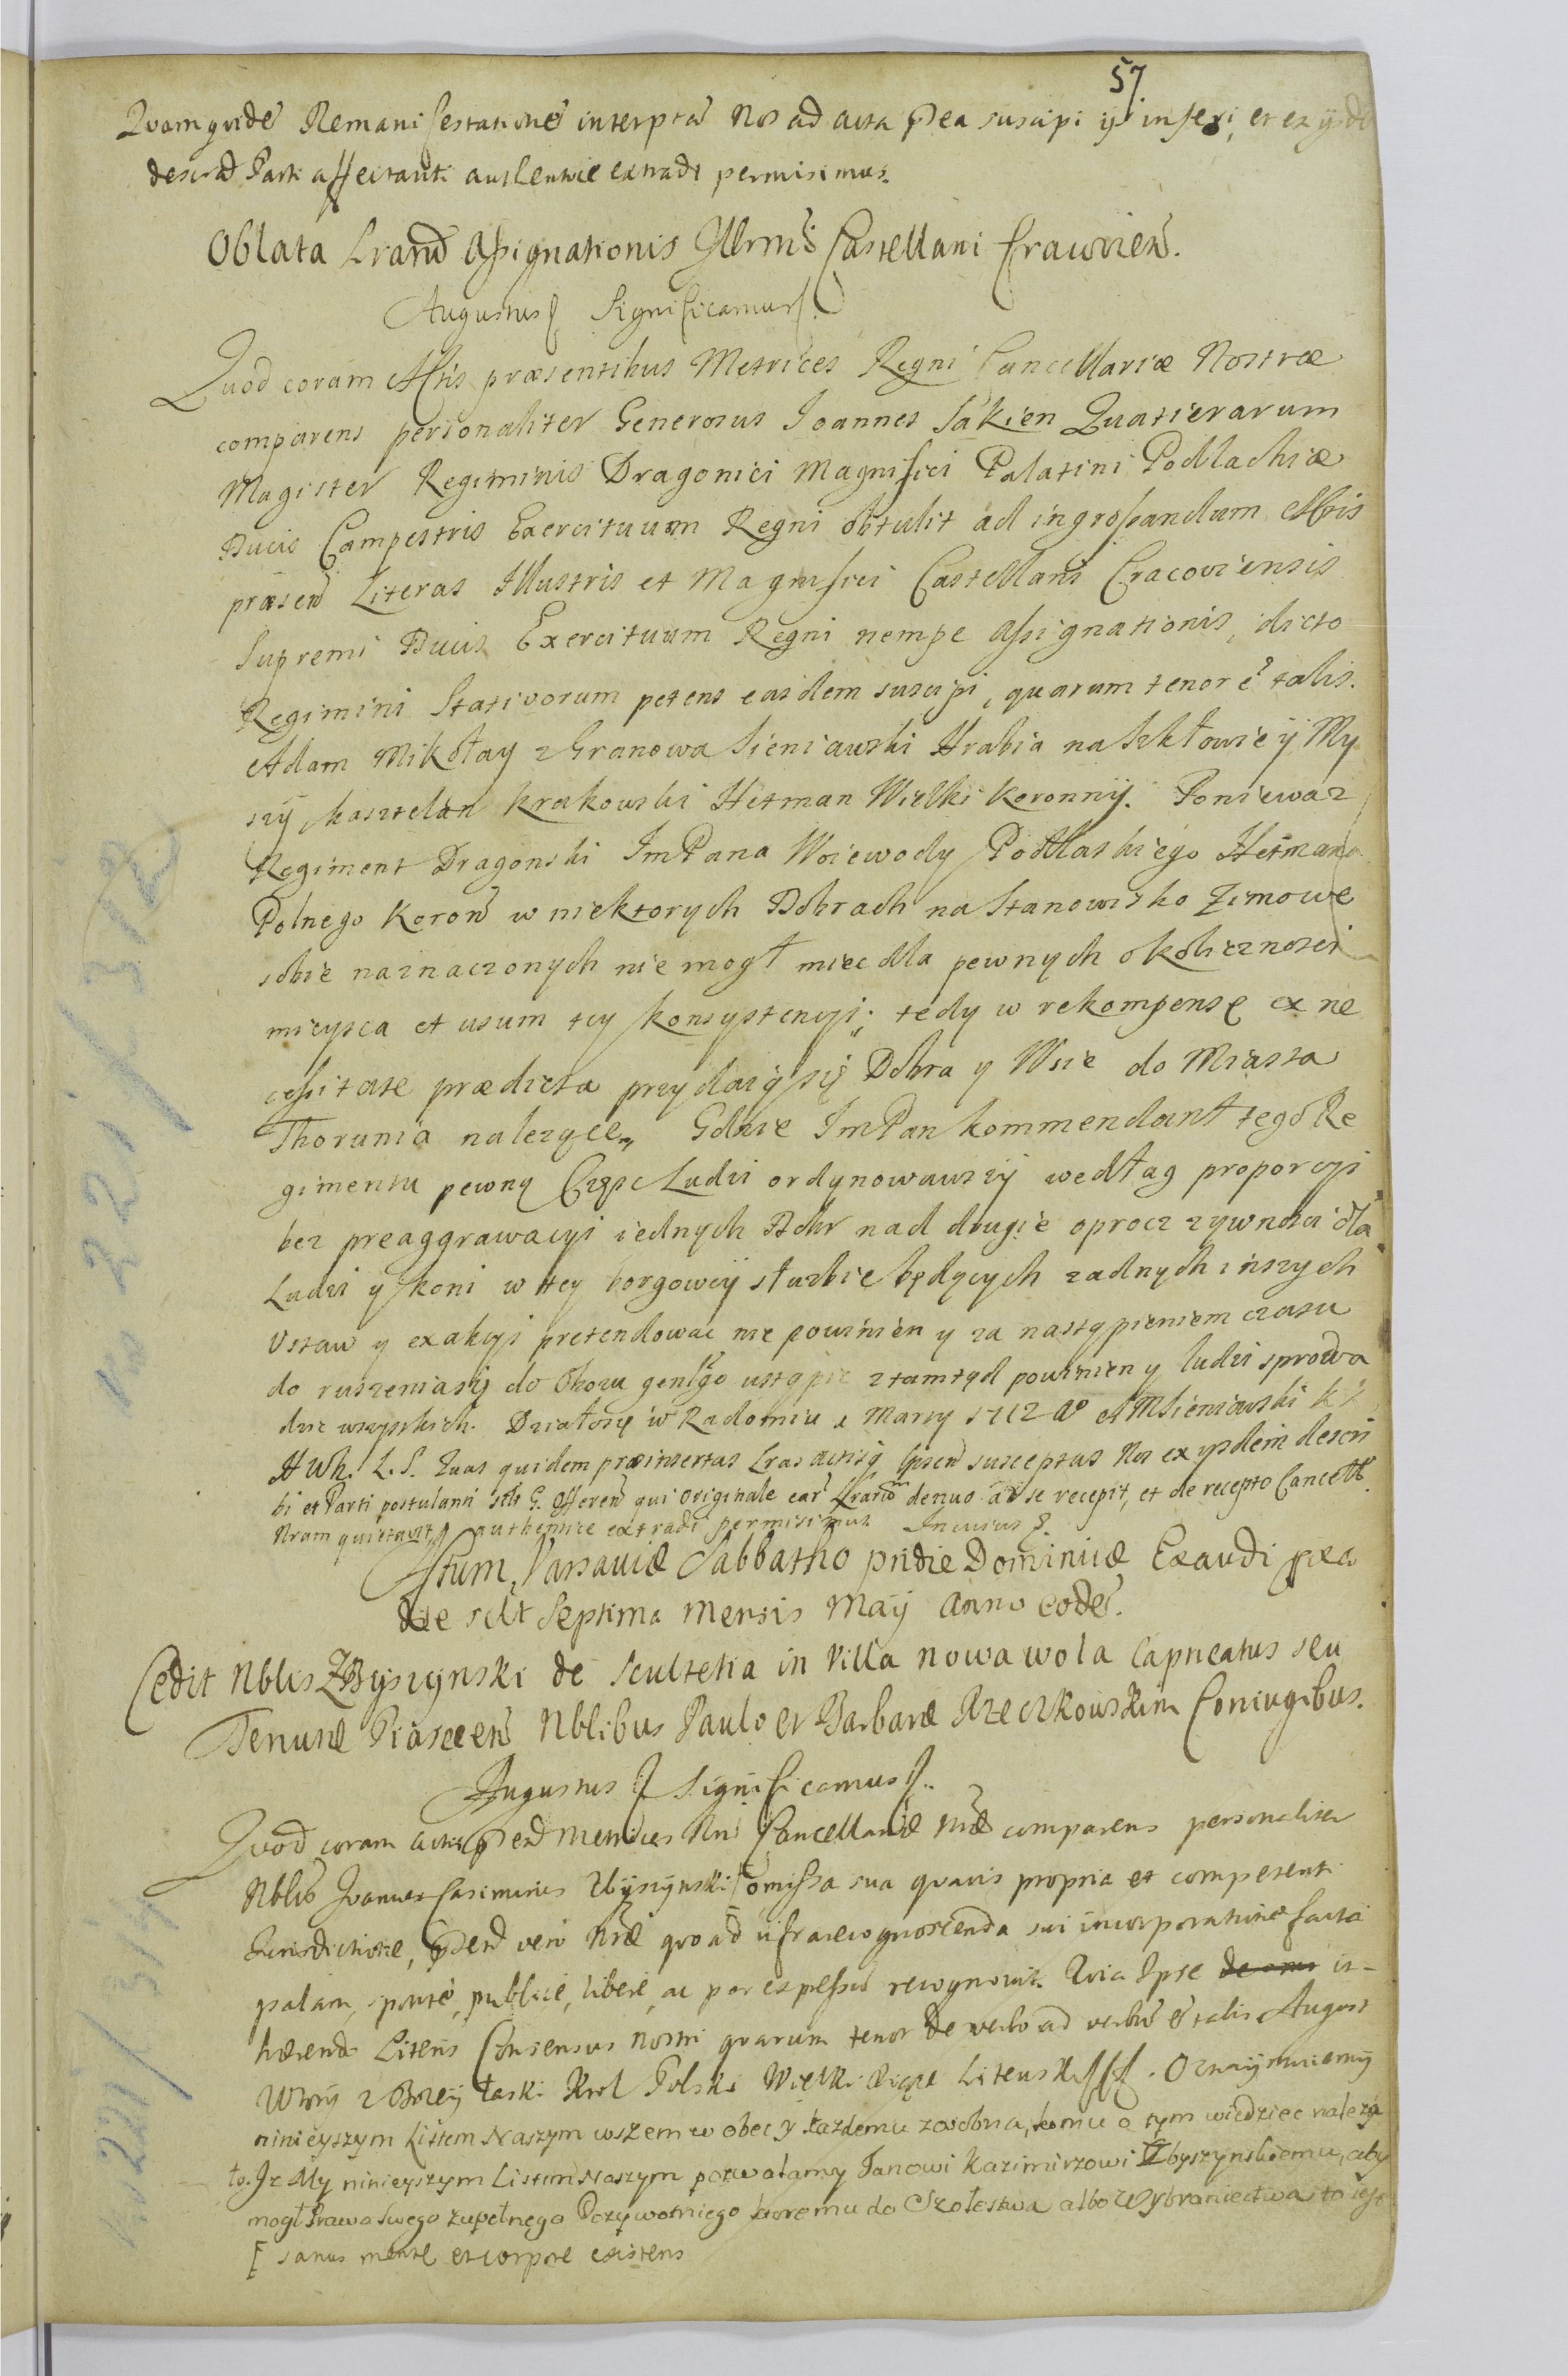 57
Quam quidẽ Remanifestationẽ interptã Nos ad acta pñea suscipi ij inseri, et ex ijsdẽ
descrid Parti affectanti authentice extradi permisimus.
Oblata Lrarũ Assignationis Illrmi Castellani Cracovien.
Augustus Significamus
Quod coram Actis præsentibus Metrices Regni Cancellariæ Nostræ
comparens personaliter Generosus Joannes Takien Quatierarum
Magister Regiminis Dragonici Magnifici Palatini Podlachiæ
Ducis Campestris Exercituum Regni obtulit ad ingrossandum Actis
præsen Literas Illustris et Magnifici Castellani Cracoviensis
Supremi Ducis Exercituum Regni nempe assignationis, dicto
Regimini Stativorum petens easdem suscipi, quarum tenor ẽ talis.
Adam Mikołay z Granowa Sieniawski Hrabia na Szkłowie ÿ My
szÿ kasztelan krakowski Hetman Wielki koronnÿ. Poniewaz
Regiment Dragonski ImPana Woiewody Podlaskiego Hetmana
Polnego Koron w niektorych Dobrach na Stanowisko Zimowe
sobie naznaczonych nie mogł miec dla pewnych okolicznosci
mieysca et usum tey konsystencyi; tedy w rekompensę ex ne
cessitate prædicta przydaią się Dobra y Wsie do Miasta
Thorunia nalezące, Gdzie ImPan kommendant tego Re
gimentu pewną Częsc Ludzi ordynowawszÿ wedłag proporcyi
bez preaggrawacyi iednych Dobr nad drugie oprocz zywnosci dla
Ludzi y koni w tey borgowey słuzbie będących zadnych inszych
Ustaw y exakcyi pretendowac nie powinien y za nastąpieniem czasu
do ruszenia się do Obozu genlgo ustąpic ztamtąd powinien y ludzi sprowa
dzic wszystkich. Działosię w Radomiu 1 Marsy 1712 Ao AMSieniawski kk
HWk. L.S. Quas quidem præinsertas Lras actisq psen susceptas Nos ex ysdem descri
bi et Parti postulanti sclt G. Offeren qui originale ear Lrarum denuo ad se recepit, et de recepto Cancell
Nram quietavit authentice extradi permisimus In cuius &.
Actum Varsaviæ Sabbatho pridie Dominicæ Exaudi pxa
die sclt Septima mensis Maÿ Anno eodẽ.
Cedit Nblis Zbyszynski de Scultetia in Villa Nowawola Capneatus seu
Tenutæ Piasecen Nblibus Paulo et Barbaræ Rzeczkowskim Coniugibus.
Augustus Significamus
Quod coram Actis pñd Metrices Rni Cancellariæ Nræ comparens personaliter
Nblis Joannes Casimirus Zbÿszÿnski [omissa sua quavis propria et competenti
Jurisdictione, pñd vero Nræ quoad infrarecognoscenda sui incorporatione facta
palam, sponte, publice, libere, ac per expressũ recognovit. Quia Ipse in-
hærendo Literis Consensus Nostri quarum tenor de verbo ad verbũ ẽ talis August
Wtory z Bozey łaski Krol Polski Wielki Xiąze Litewski. Oznaÿmuiemÿ
ninieyszym Listem Naszym wszem w obec y kazdemu zosobna, komu o tym wiedziec nalezą
ło. Iz My ninieyszym Listem Naszym pozwalamy Janowi Kazimirzowi Zbyszynskiemu, aby
mogł Prawa Swego zupełnego Dozywotniego ktoremu do Szołestwa albo Wybraniectwa to iest
[ sanus mente et corpore existens